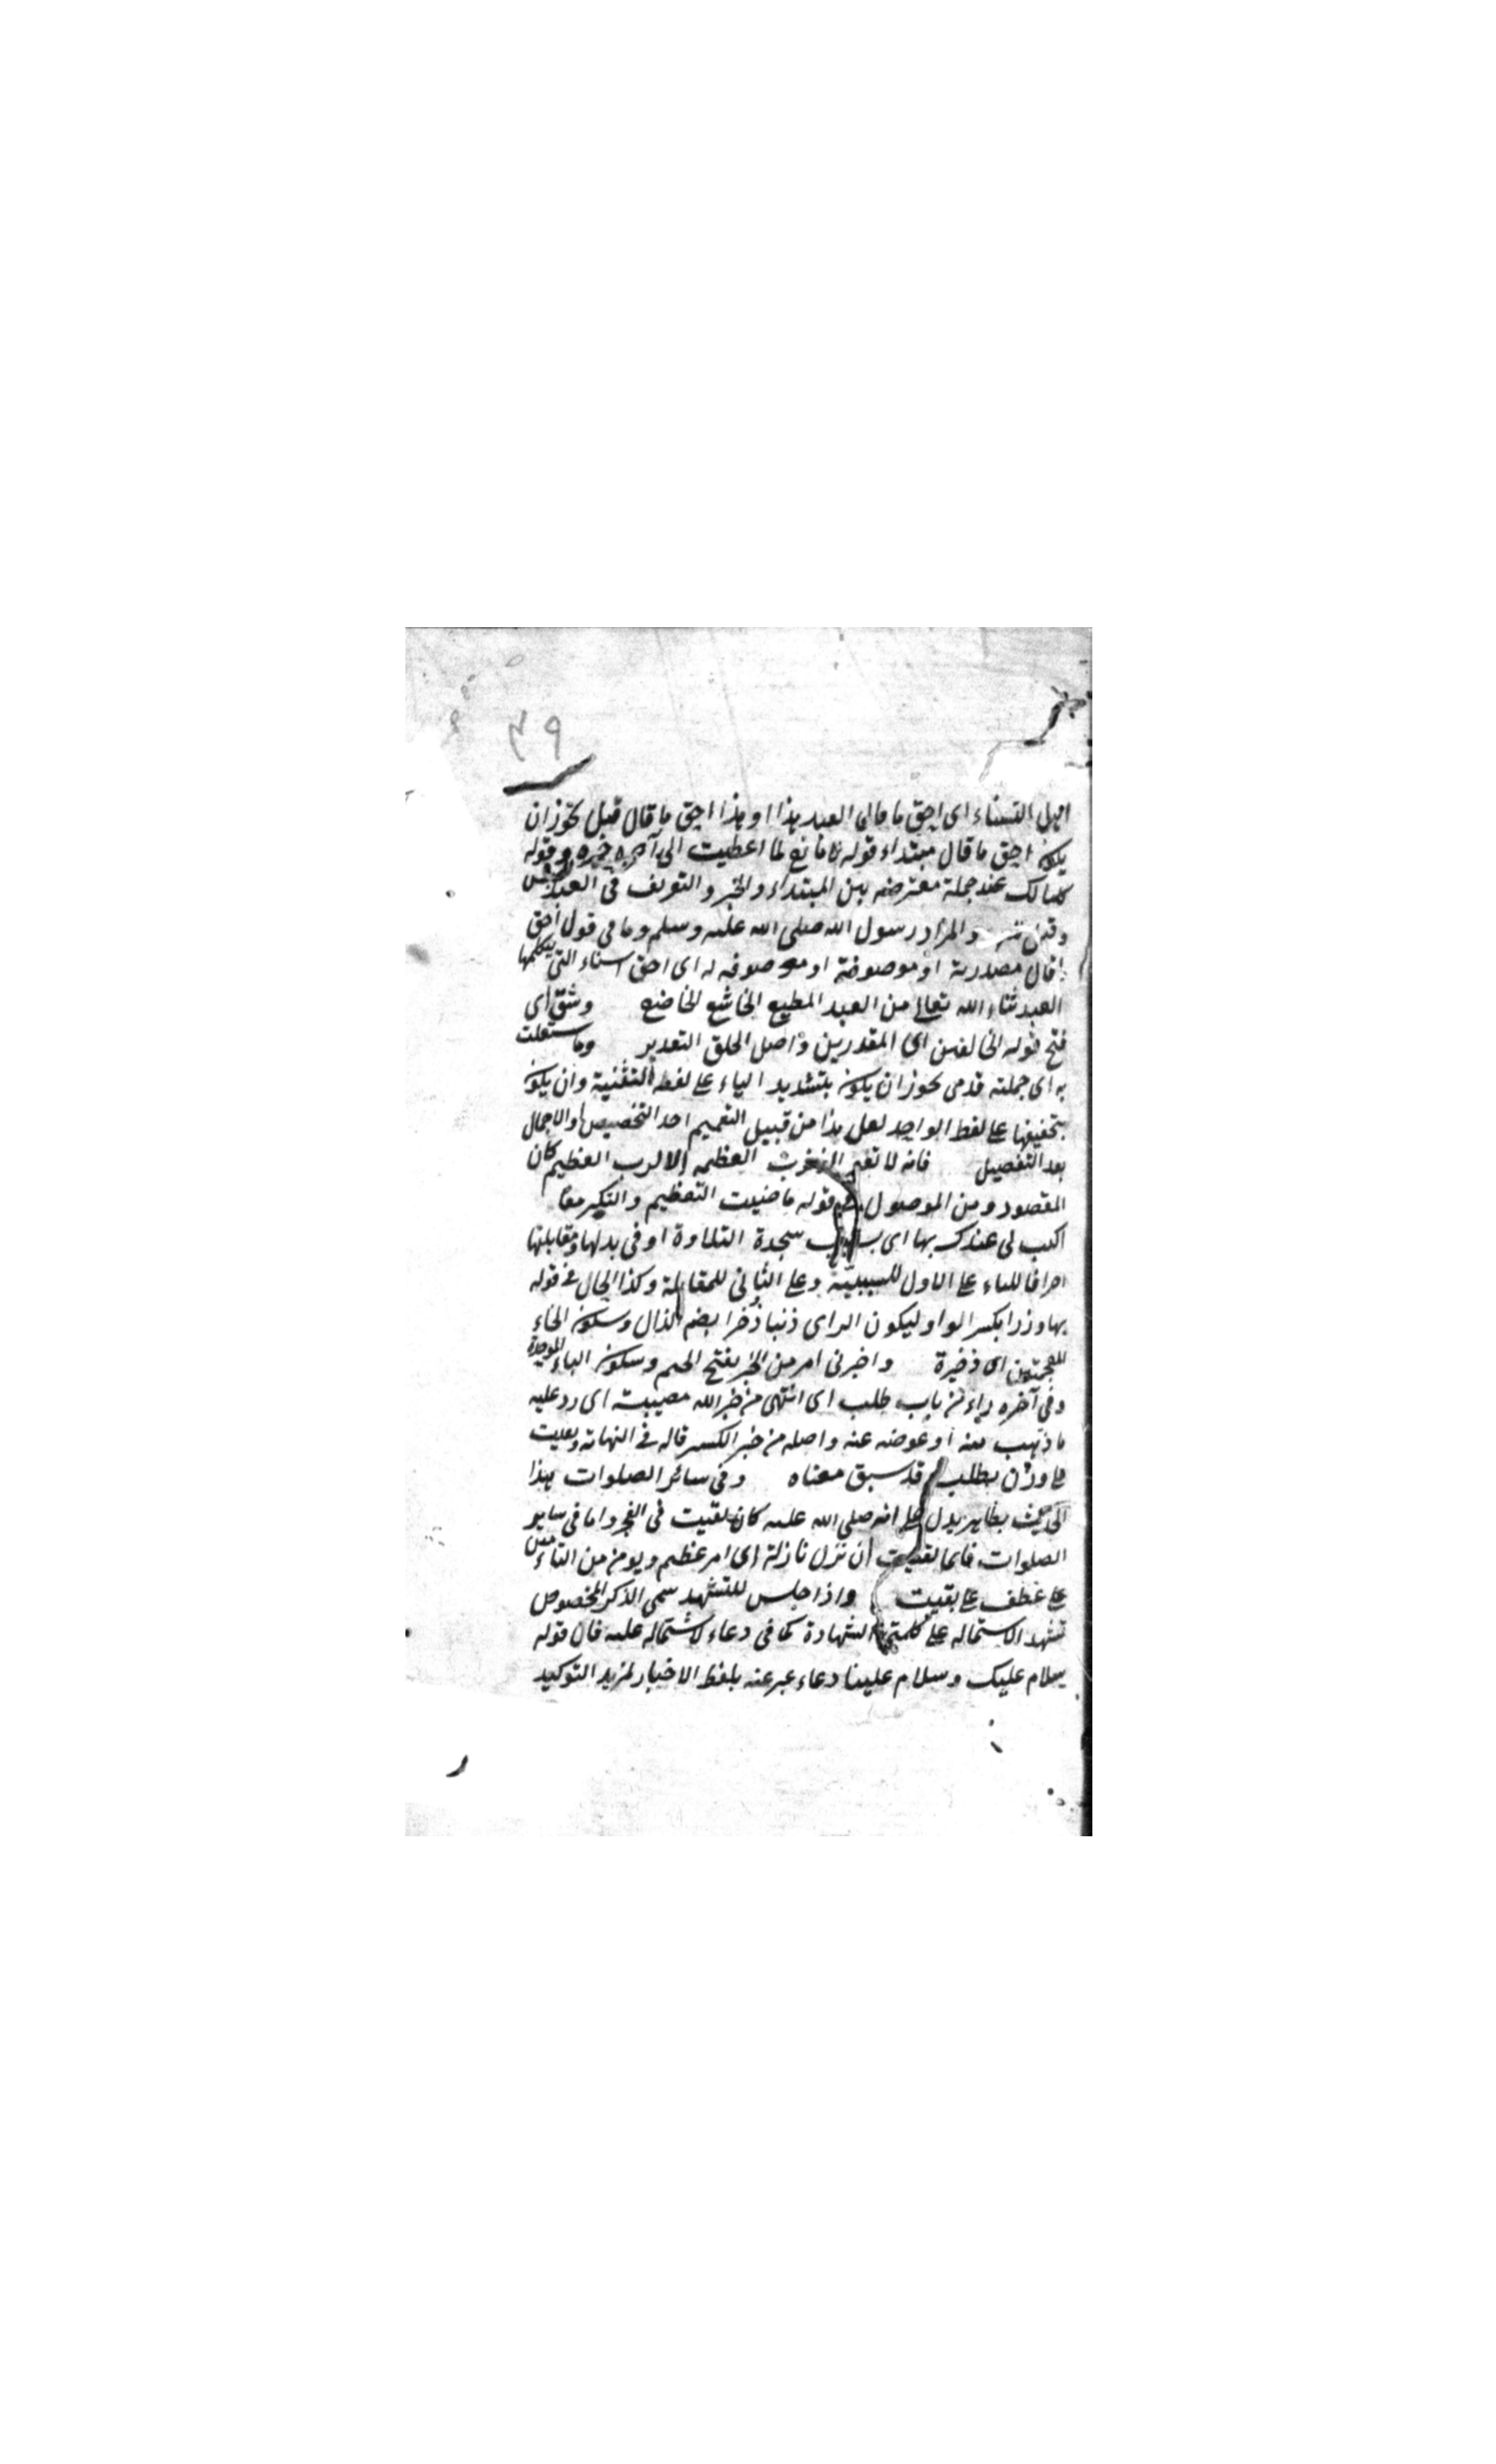 ٣٩
اهل الثناء اى احق ما قال العبد هذا او هذا احق ما قال قيل يجوز ان
يكون احق ما قال مبتداء قوله لا مانع لما اعطيت الى آخره خبره وقوله
كلنا لك عبد جملة معترضه بين المبتداء والخبر والتعريف فى العبد
والمراد رسول الله صلى الله عليه وسلم وما فى قول احق
قال مصدرية او موصوفة او موصوفه له اى احق اسناء التى يتكلمها
العبد ثناء الله تعالى من العبد المطيع الخاشع الخاضع وشق اى
فتح قوله الخالقين اى المقدرين واصل الخلق التقدير وما استقلت
به اى حملته قدمى يجوز ان يكون بتشديد الياء على لفظ التثنية وان يكون
بتخفيفها على لفظ الواحد لعل هذا من قبيل التعميم احد التخصيص او الاجمال
بعد التفصيل فانه لا تغفر الذنوب العظيمه الا الرب العظيم كان
المقصود من الموصول فى قوله ما صنيت التعظيم والتكير معا
اكتب لى عندك بها اى بسبب سجدة التلاوة او فى بدلها ومقابلتها
اجرا فالباء على الاول للسببية وعلى الثانى للمقابلة وكذا الحال فى قوله
بها وزرا بكسر الواو وليكون الراى ذنبا ذخرا بضم الذال وسكون الخاء
المعجمتين اى ذخيرة واجبرنى امر من الجبر بفتح الجيم وسكون الباء الموحدة
وفى آخره راء من باب طلب اى انتهى من جبر الله مصيبته اى رد عليه
ما ذهب منه او عوضه عنه واصله من جبر الكسر قاله فى النهاية ويقيت
على وزن يطلب قد سبق معناه وفى سائر الصلوات هذا
الحديث بظاهره يدل على انه صلى الله عليه كان يقيت فى الفجر واما فى ساير
الصلوات فانما يقيت ان نزل نازلة اى امر عظيم ويومن من التاء مين
على عطف على يقيت واذا جلس للتشهد سمى الذكر المخصوص
تشهدا لاشتماله على كلمتى الشهادة كما فى دعاء لاشتماله عليه فان قوله
سلام عليك وسلام علينا دعاء عبر عنه بلفظ الاخبار لمزيد التوكيد